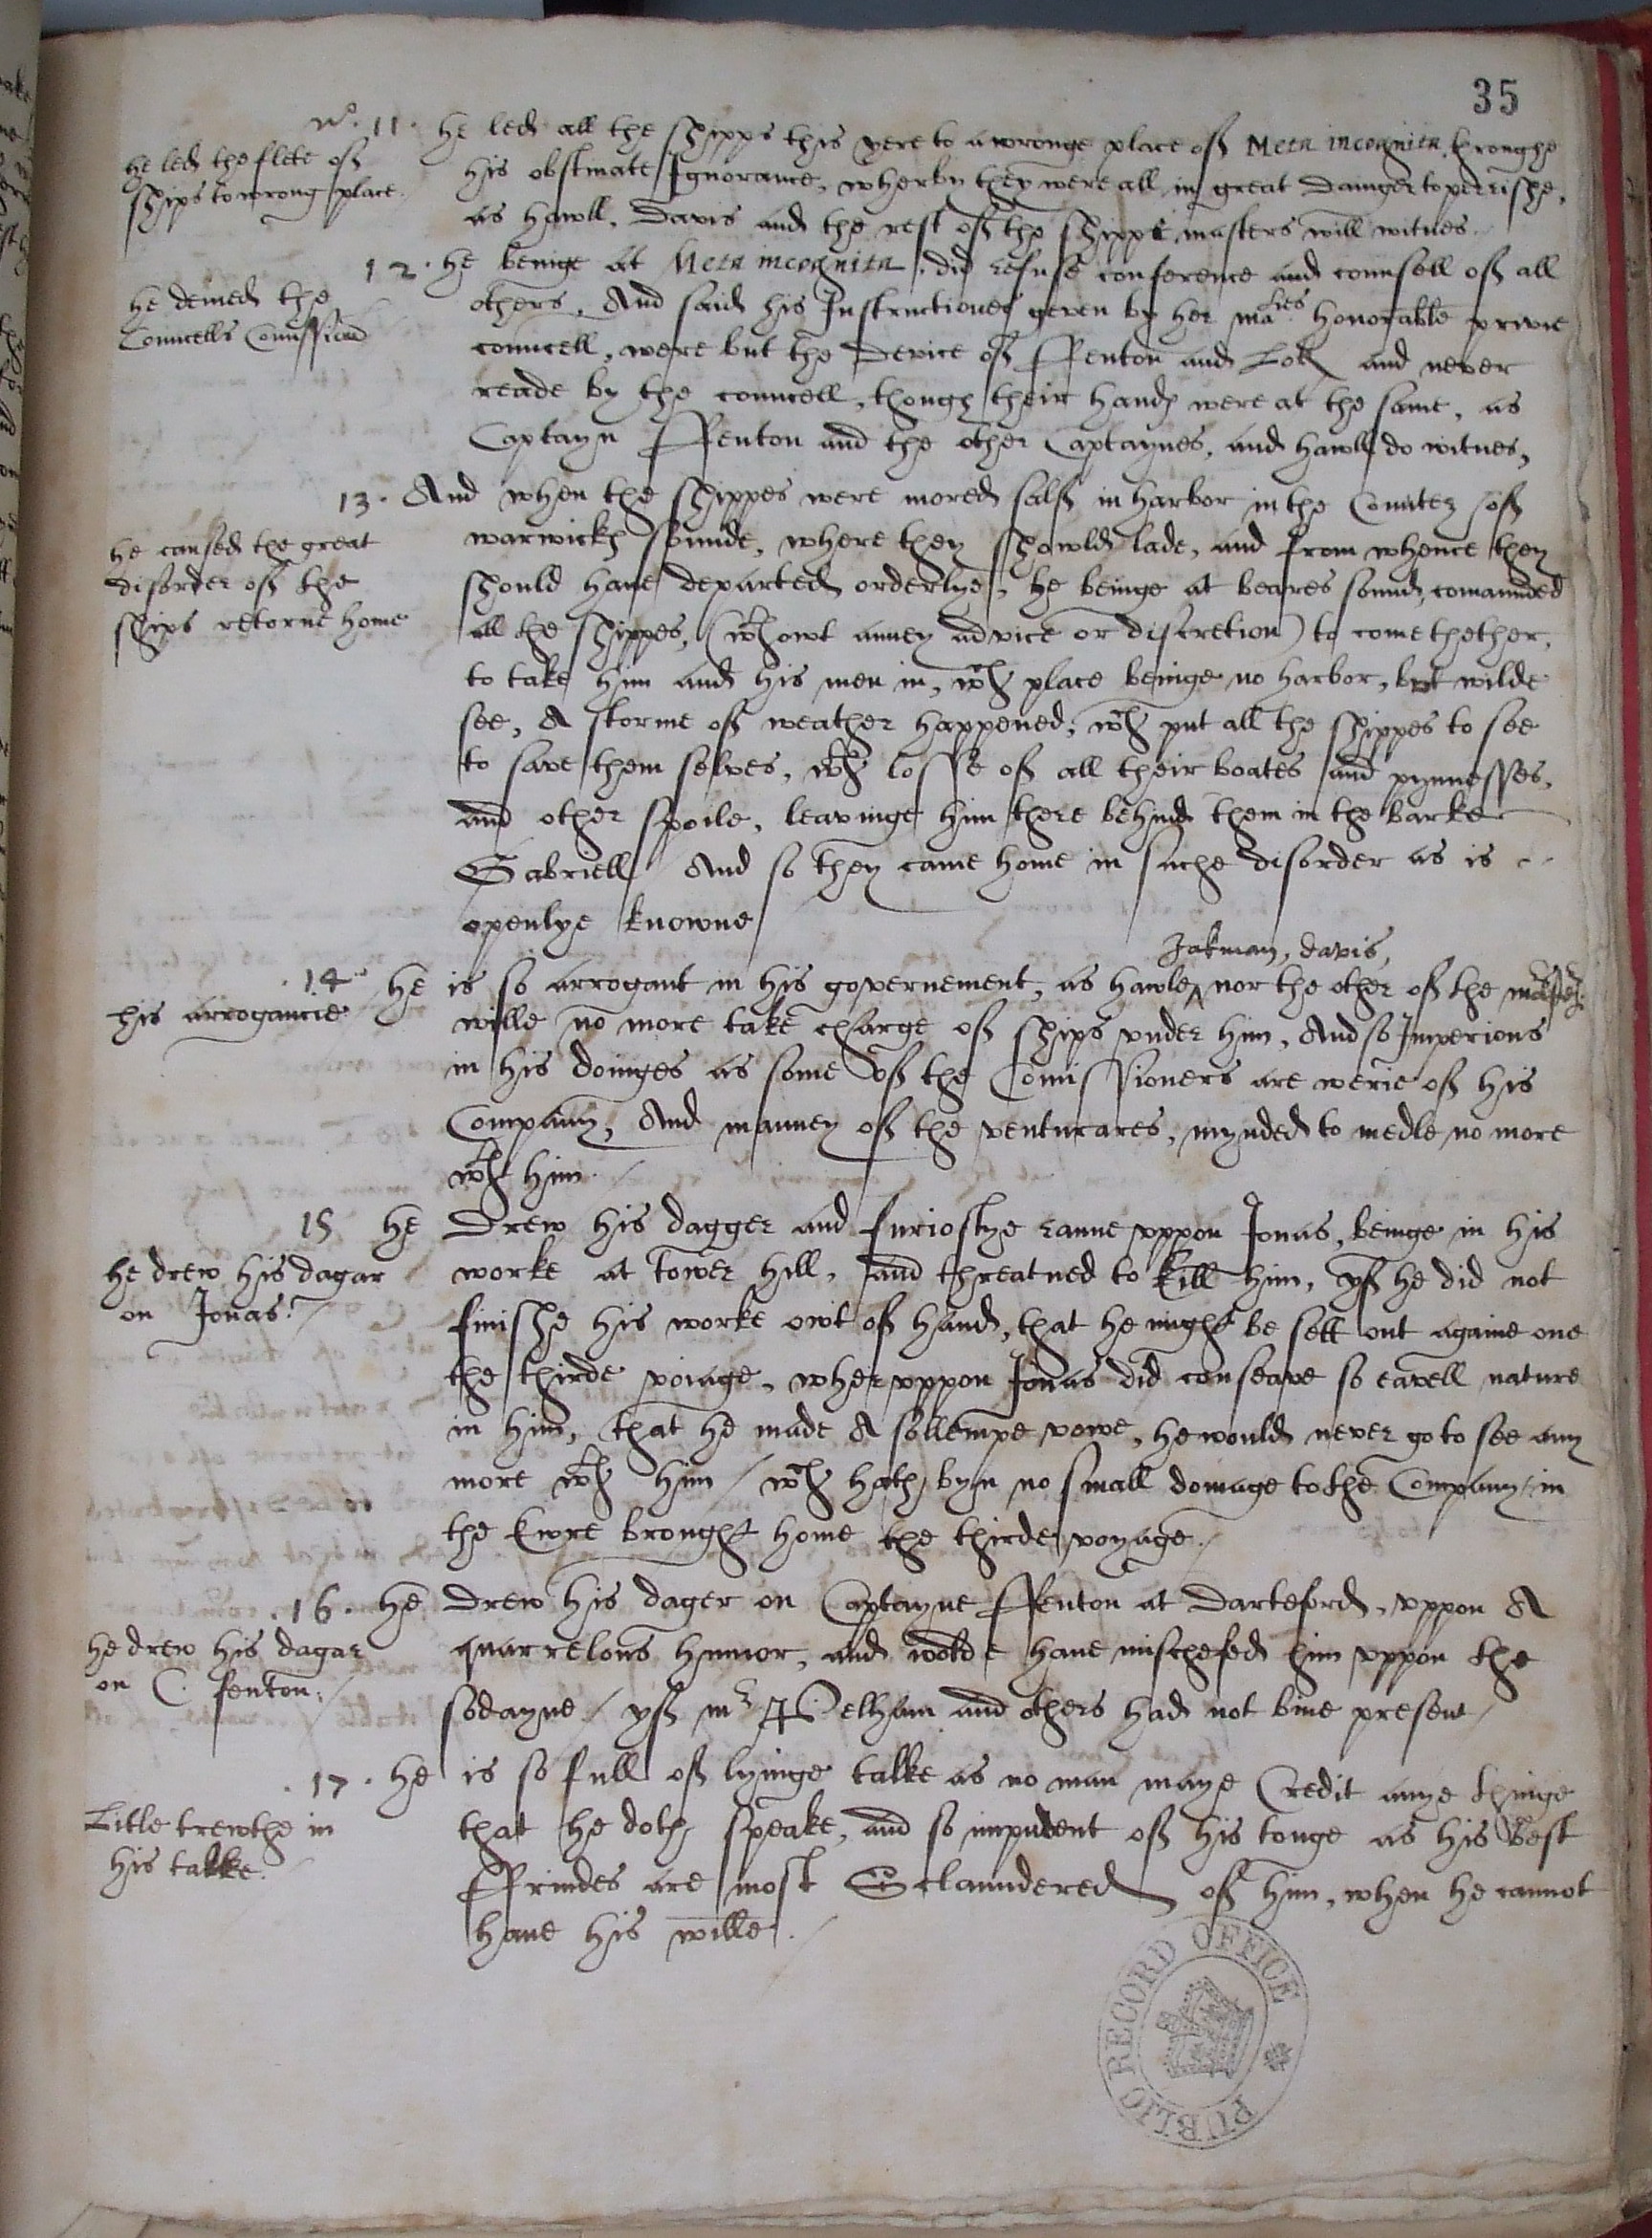 35
No. 11. He led all the shipps this yere to a wronge place off Meta incognita throughe
he led the flete off
ships to wrong place.
his obstinate Ignorance, wherby they were all in great dainger to perrishe,
as Hawll, Davis and the rest off the shippe masters will witnes.
12. He beinge at Meta incognita, did refuse conference and counsell off all
he denied the
Councells Comission
others, And said his Instructiones geven by her maties honorable privie
councell, were but the device off Ffenton and Lok, and never
reade by the councell, though their hands were at the same, as
Captayn Ffenton and the other Captaynes, and Hawll do witnes,
13. And when the shippes were mored salff in harbor in the Countes off
he caused the great
disorder off the
ships retorne home
warwicks sounde, where they showld lade, and from whence they
should have departed orderlye, he beinge at beares sound, comaunded
all the shippes, (wthowt anney advice or discretion) to come thether,
to take him and his men in, wch place beinge no harbor, but wilde
see, A storme off weather happened, wch put all the shippes to see
to save them selves, wth losse off all their boates and pynnesses,
and other spoile, leavinge him there behind them in the barke
Gabriell / And so they came home in suche disorder as is
openlye knowne /
Jakman, davis,
14 He is so arrogant in his governement, as Hawle nor the other of the masters
his arrogancie
wille no more take charge off ships under him, And so Imperious
in his doinges as some off the Comissioners are werie off his
Company, And manney off the venturares, mynded to medle no more
wth him. /
15 He Drew his dagger and furioslye ranne uppon Jonas, beinge in his
he drew his dagar
on Jonas. /
worke at Tower hill, and threatned to kill him, yff he did not
finishe his worke owt of hand, that he might be sett out againe one
the thirde voiage, wheruppon Jonas did conseave so eavell nature
in him, that he made A sollempe vowe, he would never go to see any
more wth him / wch hath byn no small domage to the Company, in
the Ewre brought home the thirde voyage. /
16. He Drew his dager on Captayne Ffenton at Darteford, uppon A
he drew his dagar
on C. fenton. /
quarrelous humor, and wolde have mischefed him uppon the
sodayne / yff mr Pelham and others had not bine present /
17. He is so full off lyinge talke as no man maye Credit anye thinge
Litle trewthe in
his talke.
that he doth speake, and so impudent off his tonge as his best
Ffrindes are most Sclaundered off him, when he cannot
have his wille. /
PUBLIC RECORD OFFICE